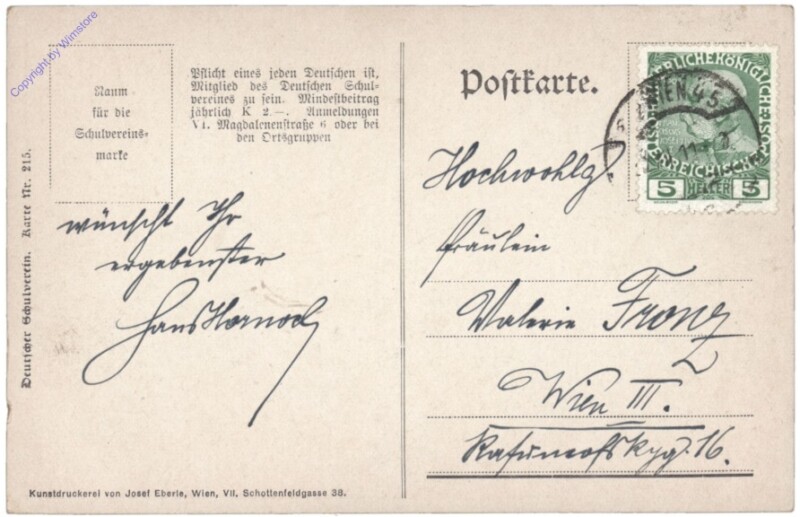 Copyright by Wimstore
Raum
für die
Schulvereins-
marke
Pflicht eines jeden Deutschen ist,
Mitglied des Deutschen Schul-
vereines zu sein. Mindestbeitrag
jährlich K 2.—. Anmeldungen
VI. Magdalenenstraße 6 oder bei
den Ortsgruppen
wünscht Ihr
ergebenster
Hans
Deutscher Schulverein. Karte Nr. 215.
Kunstdruckerei von Josef Eberle, Wien, VII, Schottenfeldgasse 38.
Postkarte.
WIEN 45
5 HELLER 5
Hochwohlg.
Fräulein
Valerie Franz
Wien III.
16.